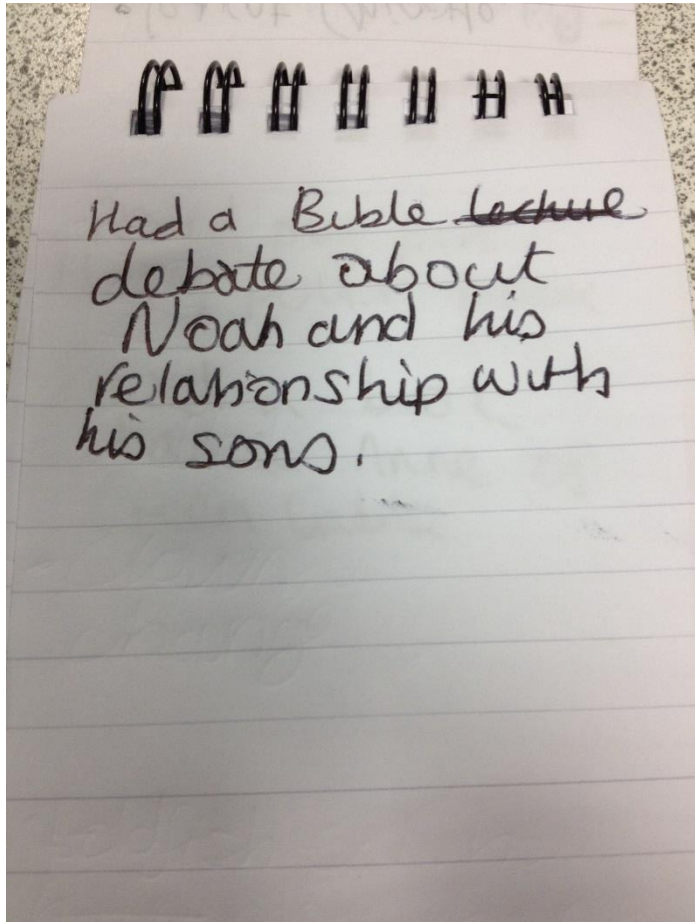 Had a Bible lecture
debate about
Noah and his
relationship with
his sons.